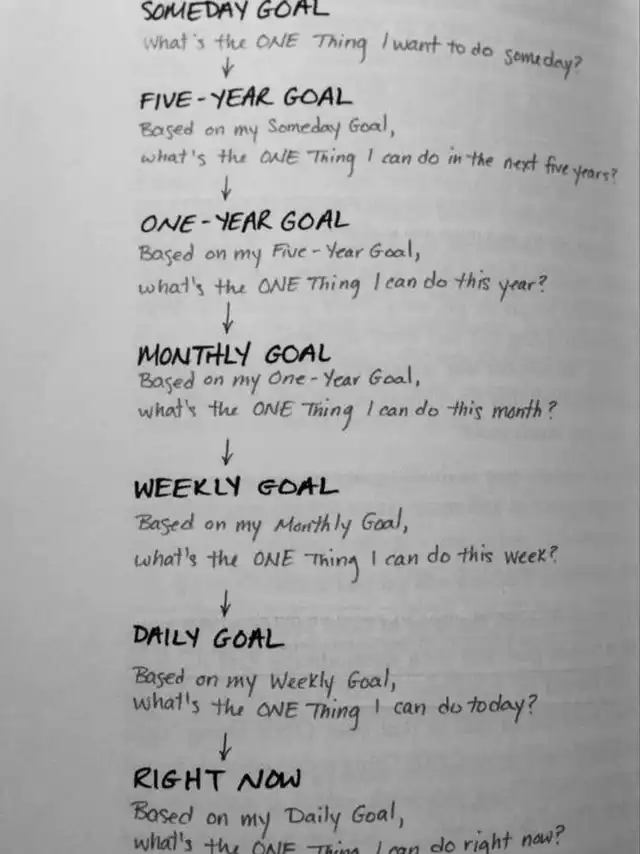 SOMEDAY GOAL
What's the ONE Thing I want to do someday?
FIVE-YEAR GOAL
Based on my Someday Goal,
what's the ONE Thing I can do in the next five years?
ONE-YEAR GOAL
Based on my Five-Year Goal,
what's the ONE Thing I can do this year?
MONTHLY GOAL
Based on my One-Year Goal,
what's the ONE Thing I can do this month?
WEEKLY GOAL
Based on my Monthly Goal,
what's the ONE Thing I can do this week?
DAILY GOAL
Based on my Weekly Goal,
what's the ONE Thing I can do today?
RIGHT NOW
Based on my Daily Goal,
what's the ONE Thing I can do right now?